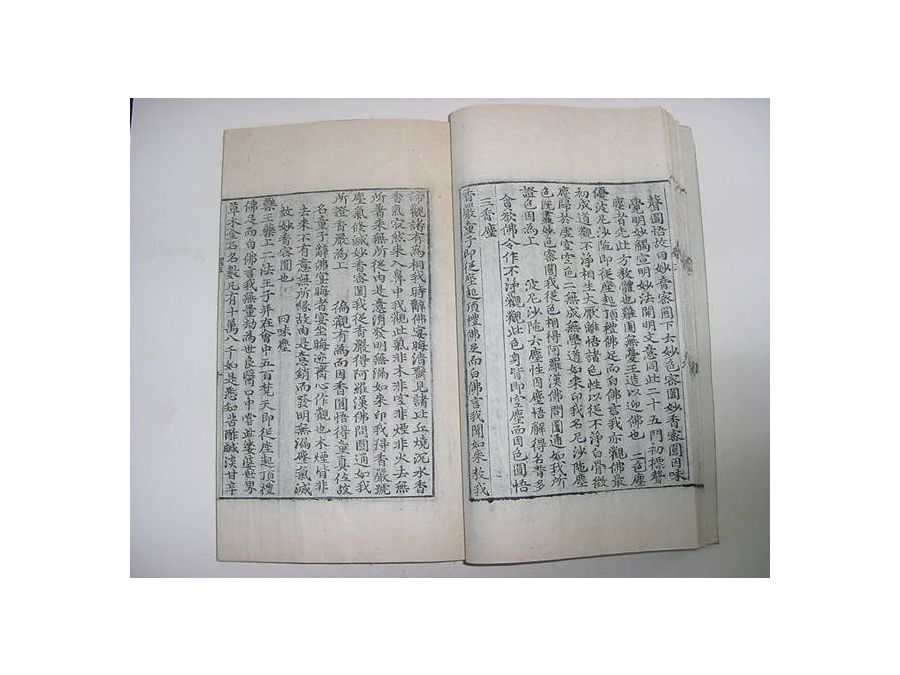 聲圓悟故曰妙音密圓下去妙色密圓妙香密圓因味
覺明妙觸宣明妙法開明文意同此二十五門初標聲
塵者先此方教體也雞園無憂王造以迎佛也 二色塵
優波尼沙陁即從座起頂禮佛足而白佛言我亦觀佛最
初成道觀不淨相生大厭離悟諸色性以從不淨白骨微
塵歸於虛空空色二無成無學道如來印我名尼沙陁塵
色旣盡妙色密圓我從色相得阿羅漢佛問圓通如我所
證色因爲上 波尼沙陁六塵性因塵悟解得名昔多
貪欲佛令作不淨觀觀此色身皆即空塵而因色圓悟
三香塵
香嚴童子即從座起頂禮佛足而白佛言我聞如來教我
諦觀諸有爲相我時辭佛宴晦清齋見諸比丘燒沉水香
香氣寂然來入鼻中我觀此氣非木非空非煙非火去無
所著來無所從由是意消發明無漏如來印我得香嚴號
塵氣倏滅妙香密圓我從香嚴得阿羅漢佛問圓通如我
所證香嚴爲上 徧觀有爲而因香圓悟得童眞位故
名童子辭佛宴晦者宴坐晦迹齊心作觀也木煙皆非
去來不有意無所緣故由是意銷而發明無漏塵氣滅
故妙香密圓也
四味塵
藥王藥上二法王子并在會中五百梵天即從座起頂禮
佛足而白佛言我無量劫爲世良醫口中嘗此娑婆世界
草木金石名數凡有十萬八千如是悉知苦酢鹹淡甘辛